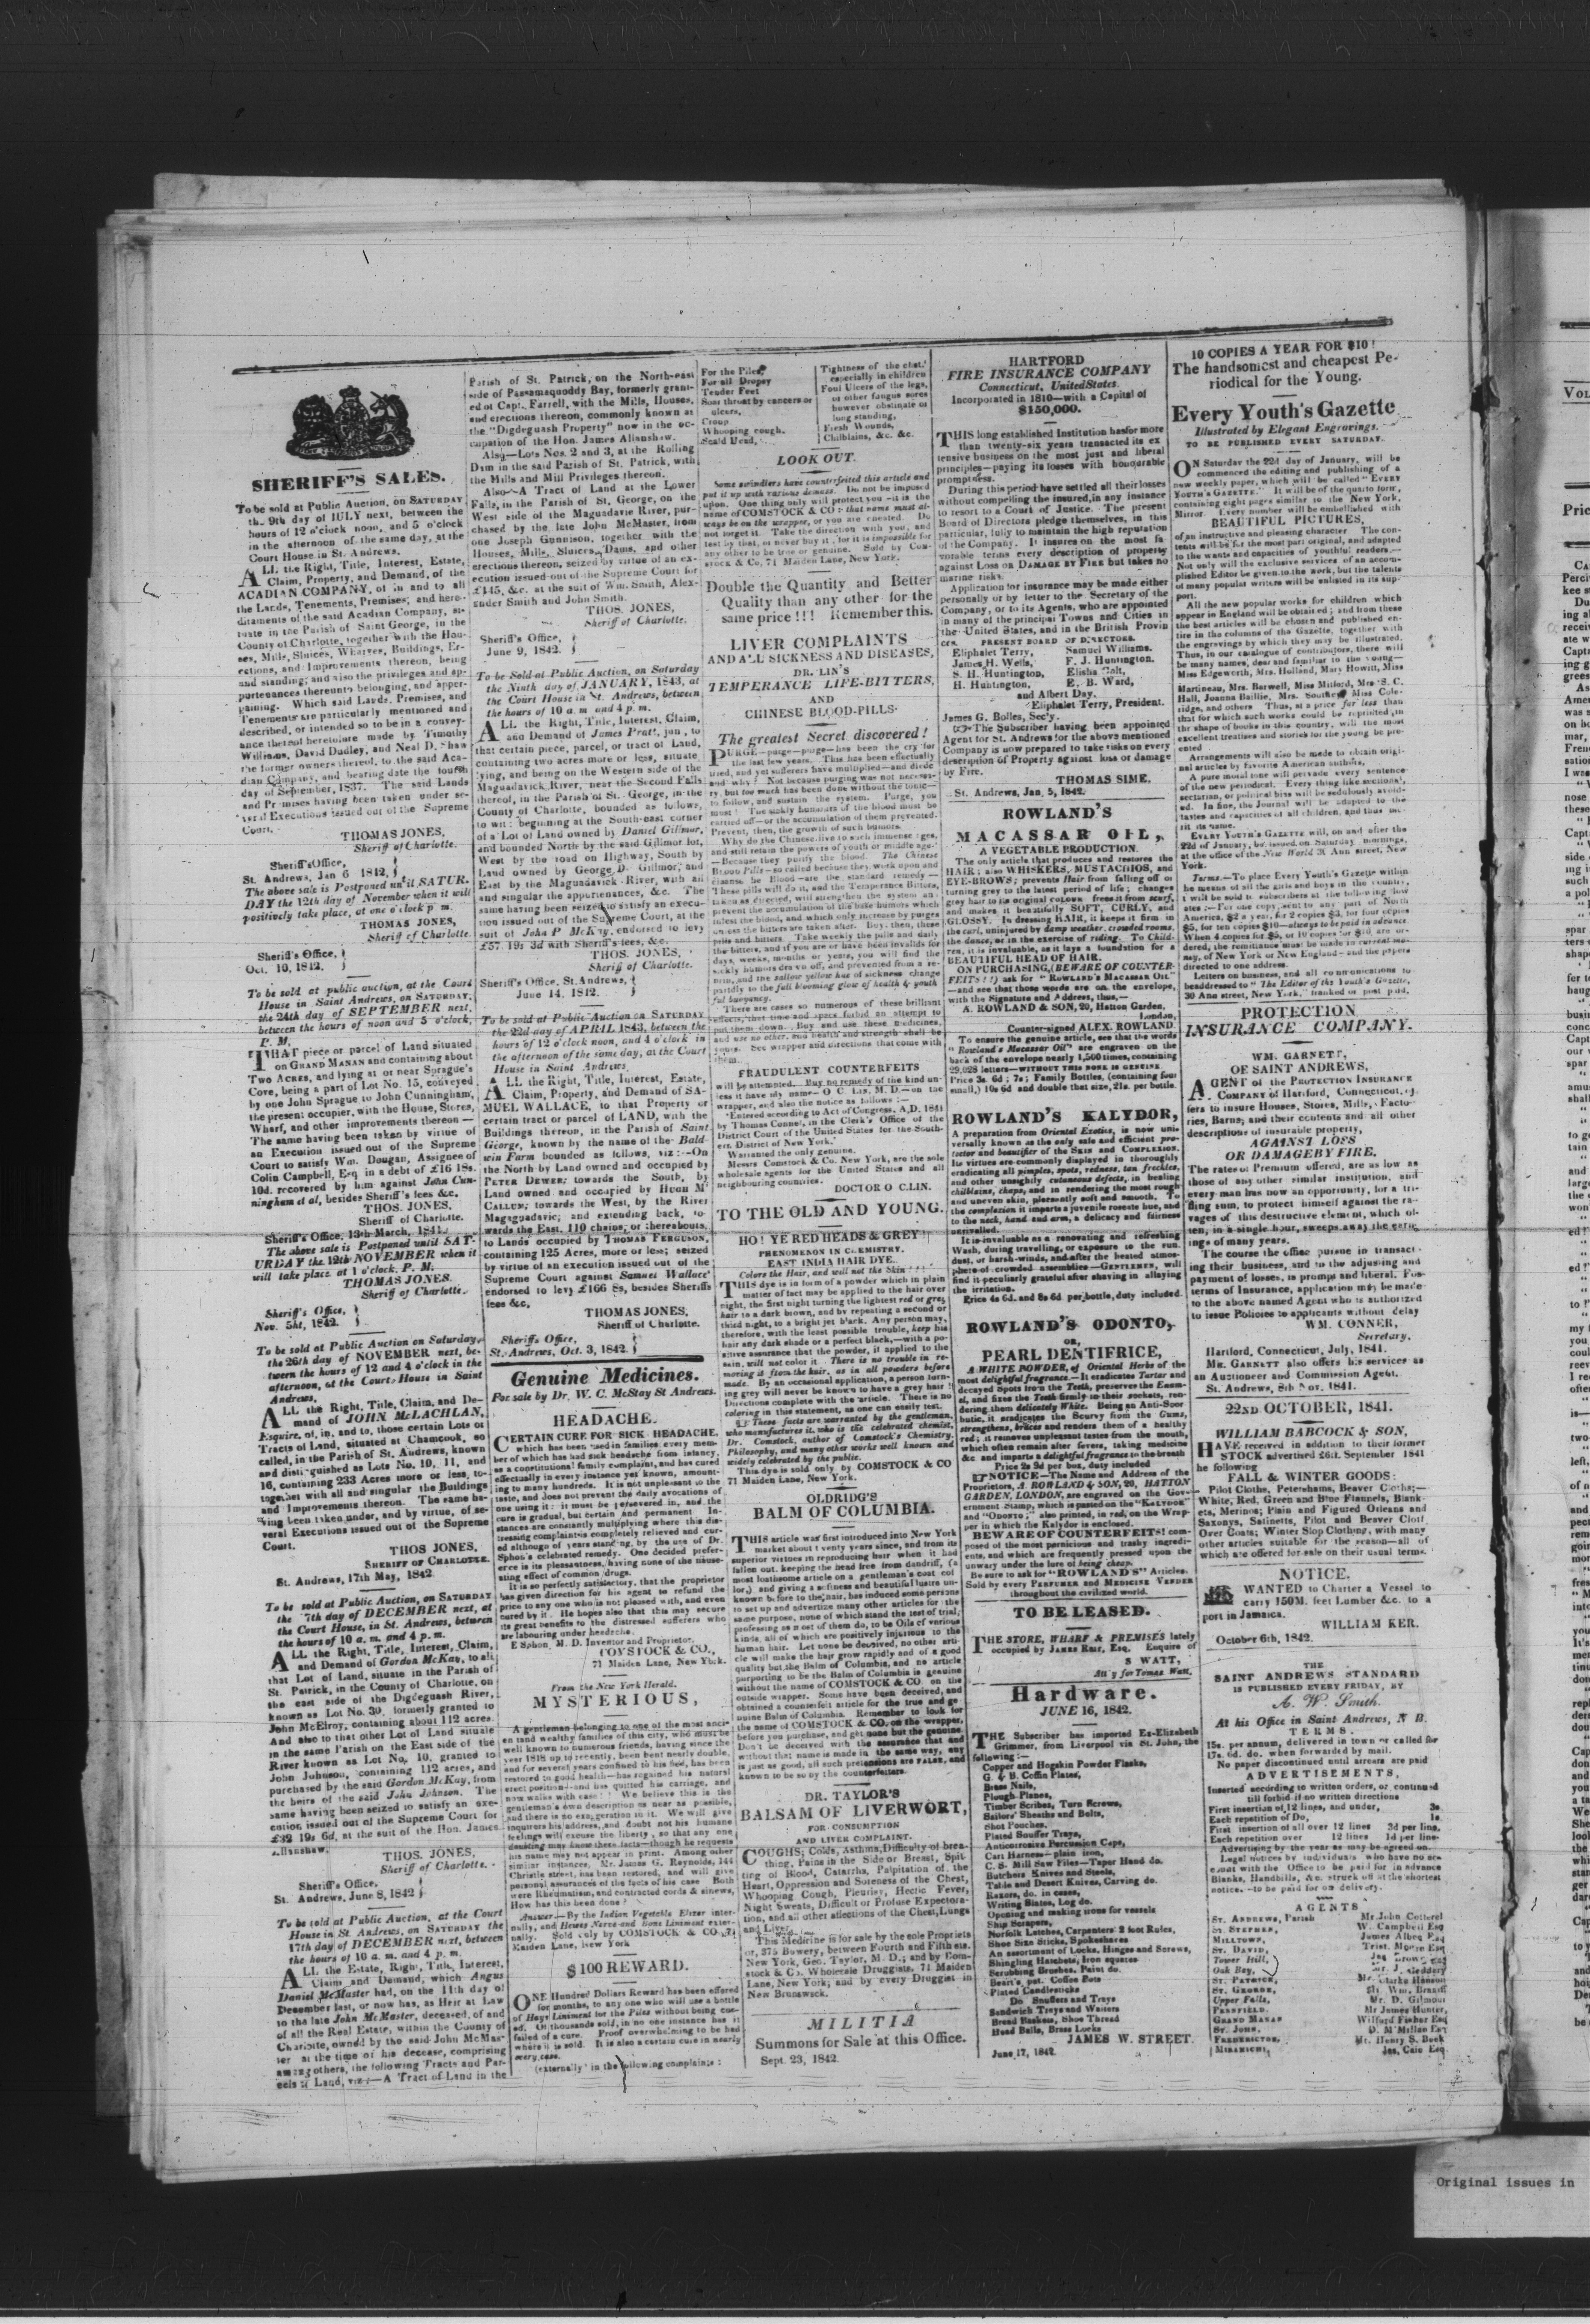 SHERIFF'S SALES.
To be sold at Public Auction, on SATURDAY
the 9th day of JULY next, between the
hours of 12 o'clock noon, and 5 o'clock
in the afternoon of the same day, at the
Court House in St. Andrews.
ALL the Right, Title, Interest, Estate,
Claim, Property, and Demand, of the
ACADIAN COMPANY, of in and to all
the Lands, Tenements, Premises, and here-
ditaments of the said Acadian Company, si-
tuate in the Parish of Saint George, in the
County of Charlotte, together with the Hou-
ses, Mills, Sluices, Wharves, Buildings, Er-
ections, and Improvements thereon, being
and standing; and also the privileges and ap-
purtenances thereunto belonging, and apper-
taining. Which said Lands, Premises, and
Tenements are particularly mentioned and
described, or intended so to be in a convey-
ance thereof heretofore made by Timothy
Williams, David Dudley, and Neal D. Shaw
the former owners thereof, to the said Aca-
dian Company, and bearing date the fourth
day of September, 1837. The said Lands
and Premises having been taken under se-
veral Executions issued out of the Supreme
Court.
THOMAS JONES,
Sheriff of Charlotte.
Sheriff's Office,
St. Andrews, Jan 6 1842,
The above sale is Postponed until SATUR-
DAY the 12th day of November when it will
positively take place, at one o'clock p m.
THOMAS JONES,
Sheriff of Charlotte.
Sheriff's Office,
Oct. 10, 1842.
To be sold at public auction, at the Court
House in Saint Andrews, on SATURDAY,
the 24th day of SEPTEMBER next,
between the hours of noon and 5 o'clock,
P. M,
THAT piece or parcel of Land situated
on GRAND MANAN and containing about
Two ACRES, and lying at or near Sprague's
Cove, being a part of Lot No. 15, conveyed
by one John Sprague to John Cunningham,
the present occupier, with the House, Stores,
Wharf, and other improvements thereon—
The same having been taken by virtue of
an Execution issued out of the Supreme
Court to satisfy Wm. Dougan, Assignee of
Colin Campbell, Esq in a debt of £16 18s.
10d. recovered by him against John Cun-
ningham et al, besides Sheriff's fees &c.
THOS. JONES,
Sheriff of Charlotte.
Sheriff's Office, 13th March, 1841.
The above sale is Postponed until SAT-
URDAY the 12th NOVEMBER when it
will take place at 1 o'clock. P. M.
THOMAS JONES.
Sheriff of Charlotte.
Sheriff's Office,
Nov. 5ht, 1842.
To be sold at Public Auction on Saturday,
the 26th day of NOVEMBER next, be-
tween the hours of 12 and 4 o'clock in the
afternoon, at the Court House in Saint
Andrews,
ALL the Right, Title, Claim, and De-
mand of JOHN McLACHLAN,
Esquire, of, in, and to, those certain Lots or
Tracts of Land, situated at Chamcook, so
called, in the Parish of St. Andrews, known
and distinguished as Lots No. 10, 11, and
16, containing 233 Acres more or less, to-
gether with all and singular the Buildings
and Improvements thereon. The same ha-
ving been taken under, and by virtue, of se-
veral Executions issued out of the Supreme
Court.
THOS JONES,
SHERIFF OF CHARLOTTE.
St. Andrews, 17th May, 1842
To be sold at Public Auction, on SATURDAY
the 7th day of DECEMBER next, at
the Court House, in St. Andrews, between
the hours of 10 a. m. and 4 p. m.
ALL the Right, Title, Interest, Claim,
and Demand of Gordon McKay, to all
that Lot of Land, situate in the Parish of
St. Patrick, in the County of Charlotte, on
the east side of the Digdeguash River,
known as Lot No. 30, formerly granted to
John McElroy, containing about 112 acres.
And also to that other Lot of Land situate
in the same Parish on the East side of the
River known as Lot No, 10, granted to
John Johnson, containing 112 acres, and
purchased by the said Gordon McKay, from
the heirs of the said John Johnson. The
same having been seized to satisfy an exe-
cution issued out of the Supreme Court for
£32 19s 6d, at the suit of the Hon. James
Allanshaw.
THOS. JONES,
Sheriff of Charlotte.
Sheriff's Office,
St. Andrews, June 8, 1842
To be sold at Public Auction, at the Court
House in St. Andrews, on SATURDAY the
17th day of DECEMBER next, between
the hours of 10 a. m. and 4 p. m.
ALL the Estate, Right, Title, Interest,
Claim and Demand, which Angus
Daniel McMaster had, on the 11th day of
December last, or now has, as Heir at Law
to the late John McMaster, deceased, of and
of all the Real Estate, within the County of
Charlotte, owned by the said John McMas-
ter at the time of his decease, comprising
among others, the following Tracts and Par-
cels of Land, viz:—A Tract of Land in the
Parish of St. Patrick, on the North-east
side of Passamaquoddy Bay, formerly grant-
ed ot Capt. Farrell, with the Mills, Houses,
and erections thereon, commonly known as
the "Digdeguash Property" now in the oc-
cupation of the Hon. James Allanshaw.
Also—Lots Nos. 2 and 3, at the Rolling
Dam in the said Parish of St. Patrick, with
the Mills and Mill Privileges thereon.
Also—A Tract of Land at the Lower
Falls, in the Parish of St. George, on the
West side of the Maguadavic River, pur-
chased by the late John McMaster, from
one Joseph Gunnison, together with the
Houses, Mills, Sluices, Dams, and other
erections thereon, seized by virtue of an ex-
ecution issued out of the Supreme Court for
£145, &c. at the suit of Wm. Smith, Alex-
ander Smith and John Smith.
THOS. JONES,
Sheriff of Charlotte.
Sheriff's Office,
June 9, 1842.
To be Sold at Public Auction, on Saturday
the Ninth day of JANUARY, 1843, at
the Court House in St. Andrews, between
the hours of 10 a. m and 4 p. m.
ALL the Right, Title, Interest, Claim,
and Demand of James Pratt, jun, to
that certain piece, parcel, or tract of Land,
containing two acres more or less, situate
lying, and being on the Western side of the
Maguadavick River, near the Second Falls
thereof, in the Parish of St. George, in the
County of Charlotte, bounded as follows,
to wit: beginning at the South-east corner
of a Lot of Land owned by Daniel Gillmor,
and bounded North by the said Gillmor lot,
West by the road on Highway, South by
Land owned by George D. Gillmor, and
East by the Maguadavick River, with all
and singular the appurtenances, &c. The
same having been seized to satisfy an execu-
tion issued out of the Supreme Court, at the
suit of John P McKay, endorsed to levy
£57. 19s 3d with Sheriff's fees, &c.
THOS. JONES,
Sheriff of Charlotte.
Sheriff's Office, St. Andrews,
June 14. 1842.
To be sold at Public Auction on SATURDAY
the 22d day of APRIL 1843, between the
hours of 12 o'clock noon, and 4 o'clock in
the afternoon of the same day, at the Court
House in Saint Andrews.
ALL the Right, Title, Interest, Estate,
Claim, Property, and Demand of SA-
MUEL WALLACE, to that Property or
certain tract or parcel of LAND, with the
Buildings thereon, in the Parish of Saint
George, known by the name of the Bald-
win Farm bounded as follows, viz:—On
the North by Land owned and occupied by
PETER DEWER; towards the South, by
Land owned and occupied by HUGH M'
CALLUM; towards the West, by the River
Magaguadavic; and extending back, to-
wards the East, 110 chains, or thereabouts,
to Lands occupied by THOMAS FERGUSON,
containing 125 Acres, more or less; seized
by virtue of an execution issued out of the
Supreme Court against Samuel Wallace
endorsed to levy £166 8s, besides Sheriff's
fees &c,
THOMAS JONES,
Sheriff of Charlotte.
Sheriff's Office,
St. Andrews, Oct. 3, 1842.
Genuine Medicines.
For sale by Dr. W. C. McStay St Andrews.
HEADACHE.
CERTAIN CURE FOR SICK HEADACHE,
which has been used in families every mem-
ber of which has had sick headache from infancy,
as a constitutional family complaint, and has cured
effectually in every instance yet known, amount-
ing to many hundreds. It is not unpleasant to the
taste, and does not prevent the daily avocations of
one using it: it must be persevered in, and the
cure is gradual, but certain and permanent In-
stances are constantly multiplying where this dis-
tressing complaint is completely relieved and cur-
ed although of years standing, by the use of Dr.
Sphon's celebrated remedy. One decided prefer-
ence is its pleasantness, having none of the nause-
ating effect of common drugs.
It is so perfectly satisfactory, that the proprietor
has given direction for his agent to refund the
price to any one who is not pleased with, and even
cured by it. He hopes also that this may secure
its great benefits to the distressed sufferers who
are labouring under headache.
E Sphon, M. D. Inventor and Proprietor.
COMSTOCK & CO.,
71 Maiden Lane, New York.
From the New York Herald.
MYSTERIOUS,
A gentleman belonging to one of the most anci-
en tand wealthy families of this city, who must be
well known to numerous friends, having since the
year 1818 up to recently, been bent nearly double,
and for several years confined to his bed, has been
restored to good health—has regained his natural
erect position—and has quitted his carriage, and
now walks with ease!! We believe this is the
gentleman's own description as near as possible,
and there is no exaggeration in it. We will give
inquirers his address, and doubt not his humane
feelings will excuse the liberty, so that any one
doubting may know these facts—though he requests
his name may not appear in print. Among other
similar instances, Mr. James G. Reynolds, 144
Christie street, has been restored, and will give
personal assurances of the facts of his case Both
were Rheumatism, and contracted cords & sinews,
How has this been done?
Answer—By the Indian Vegetable Elixer inter-
nally, and Hewes Nerve and Bone Liniment exter-
nally. Sold only by COMSTOCK & CO. 71
Maiden Lane, New York
$100 REWARD.
ONE Hundred Dollars Reward has been offered
for months, to any one who will use a bottle
of Hays Liniment for the Piles without being cur-
ed. Of thousands sold, in no one instance has it
failed of a cure. Proof overwhelming to be had
where it is sold. It is also a certain cure in nearly
every case.
(externally) in the following complaints:
For the Piles,
For all Dropsy
Tender Feet
Sore throat by cancers or
ulcers,
Croup
Whooping cough.
Scald Head,
Tightness of the chest,
especially in children
Foul Ulcers of the legs,
or other fungus sores
however obstinate or
long standing,
Fresh Wounds,
Chilblains, &c. &c.
LOOK OUT.
Some swindlers have counterfeited this article and
put it up with various devises. Do not be imposed
upon. One thing only will protect you—it is the
name of COMSTOCK & CO: that name must al-
ways be on the wrapper, or you are cheated. Do
not forget it. Take the direction with you, and
test by that, or never buy it, for it is impossible for
any other to be true or genuine. Sold by Com-
stock & Co, 71 Maiden Lane, New York.
Double the Quantity and Better
Quality than any other for the
same price!!! Remember this.
LIVER COMPLAINTS
AND ALL SICKNESS AND DISEASES,
DR. LIN'S
TEMPERANCE LIFE-BITTERS,
AND
CHINESE BLOOD-PILLS.
The greatest Secret discovered!
PURGE—purge—purge—has been the cry for
the last few years. This has been effectually
tried, and yet sufferers have multiplied—and died
and why? Not because purging was not necess-
ry, but too much has been done without the tonic—
to follow, and sustain the system. Purge, you
must! The sickly humours of the blood must be
carried off—or the accumulation of them prevented.
Prevent, then, the growth of such humors.
Why do the Chinese live to such immense ages,
and still retain the powers of youth or middle age?
—Because they purify the blood. The Chinese
Blood Pills—so called because they work upon and
cleanse he Blood—are the standard remedy—
These pills will do it, and the Temperance Bitters,
taken as directed, will strengthen the system an
prevent the accumulation of the base humors which
infest the blood, and which only increase by purges
unless the bitters are taken after. Buy, then, these
pills and bitters. Take weekly the pills and daily
the bitters, and if you are or have been invalids for
days, weeks, months or years, you will find the
sickly humors drawn off, and prevented from a re-
turn, and the sallow yellow hue of sickness change
partdly to the full blooming glow of health & youth
ful buoyancy.
There are cases so numerous of these brilliant
effects, that time and space forbid an attempt to
put them down. Buy and use these medicines,
and use no other, and health and strength shall be
yours. See wrapper and directions that come with
them.
FRAUDULENT COUNTERFEITS
will be attempted. Buy no remedy of the kind un-
less it have my name—O C. LIN, M. D.—on the
wrapper, and also the notice as follows:—
'Entered according to Act of Congress, A.D. 1841
by Thomas Connel, in the Clerk's Office of the
District Court of the United States for the South-
ern District of New York.'
Warranted the only genuine.
Messrs Comstock & Co. New York, are the sole
wholesale agents for the United States and all
neighbouring countries.
DOCTOR O C.LIN.
TO THE OLD AND YOUNG.
HO! YE RED HEADS & GREY!
PHENOMENON IN CHEMISTRY.
EAST INDIA HAIR DYE.
Colors the Hair, and will not the Skin!!!
THIS dye is in form of a powder which in plain
matter of fact may be applied to the hair over
night, the first night turning the lightest red or grey
hair to a dark brown, and by repeating a second or
third night, to a bright jet black. Any person may,
therefore, with the least possible trouble, keep his
hair any dark shade or a perfect black,—with a po-
sitive assurance that the powder, it applied to the
skin, will not color it. There is no trouble in re-
moving it from the hair, as in all powders before
made. By an occasional application, a person turn-
ing grey will never be known to have a grey hair!
Directions complete with the article. There is no
coloring in this statement, as one can easily test.
These facts are warranted by the gentleman,
who manufactures it, who is the celebrated chemist,
Dr. Comstock, author of Comstock's Chemistry,
Philosophy, and many other works well known and
widely celebrated by the public.
This dye is sold only by COMSTOCK & CO
71 Maiden Lane, New York.
OLDRIDG'S
BALM OF COLUMBIA.
THIS article was first introduced into New York
market about twenty years since, and from its
superior virtues in reproducing hair when it had
fallen out, keeping the head free from dandriff, (a
most loathsome article on a gentleman's coat col
lor,) and giving a softness and beautiful lustre un-
known before to the hair, has induced some persons
to set up and advertize many other articles for the
same purpose, none of which stand the test of trial;
professing as most of them do, to be Oils of various
kinds, all of which are positively injurious to the
human hair. Let none be deceived, no other arti-
cle will make the hair grow rapidly and of a good
quality but the Balm of Columbia, and no article
purporting to be the Balm of Columbia is genuine
without the name of COMSTOCK & CO. on the
outside wrapper. Some have been deceived, and
obtained a counterfeit article for the true and ge
nuine Balm of Columbia. Remember to look for
the name of COMSTOCK & CO. on the wrapper,
before you purchase, and get none but the genuine.
Don't be deceived with the assurance that and
without that name is made in the same way, any
is just as good, all such pretensions are FALSE, and
known to be so by the counterfeiters.
DR. TAYLOR'S
BALSAM OF LIVERWORT,
FOR CONSUMPTION
AND LIVER COMPLAINT.
COUGHS; Colds, Asthma, Difficulty of brea-
thing, Pains in the Side or Breast, Spit-
ting of Blood, Catarrhs, Palpitation of the
Heart, Oppression and Soreness of the Chest,
Whooping Cough, Pleurisy, Hectic Fever,
Night Sweats, Difficult or Profuse Expectora-
tion, and all other affections of the Chest, Lungs
and Liver.
This Medicine is for sale by the sole Propriets
or, 375 Bowery, between Fourth and Fifth sts.
New York, Geo. Taylor, M. D.; and by Com-
stock & Co. Wholecale Druggists, 71 Maiden
Lane, New York; and by every Druggist in
New Brunswick.
MILITIA
Summons for Sale at this Office.
Sept. 23, 1842.
HARTFORD
FIRE INSURANCE COMPANY
Connecticut, United States.
Incorporated in 1810—with a Capital of
$150,000.
THIS long established Institution hasfor more
than twenty-six years transacted its ex
tensive business on the most just and liberal
principles—paying its losses with honourable
promptness.
During this period have settled all theirlosses
without compelling the insured, in any instance
to resort to a Court of Justice. The present
Board of Directors pledge themselves, in this
particular, fully to maintain the high reputation
of the Company. It insures on the most fa
vorable terms every description of property
against Loss on DAMAGE BY FIRE but takes no
marine risks.
Application for insurance may be made either
personally or by letter to the Secretary of the
Company, or to its Agents, who are appointed
in many of the principal Towns and Cities in
the United States, and in the British Provin
ces.
PRESENT BOARD OF DIRECTORS.
Eliphalet Terry, Samuel Williams.
James H. Wells, F. J. Huntington.
S. H. Huntington, Elisha Colt,
H. Huntington, E. B. Ward,
and Albert Day.
Eliphalet Terry, President.
James G. Bolles, Sec'y.
The Subscriber having been appointed
Agent for St. Andrews for the above mentioned
Company is now prepared to take risks on every
description of Property against loss or damage
by Fire.
THOMAS SIME.
St. Andrews, Jan. 5, 1842.
ROWLAND'S
MACASSAR OIL,
A VEGETABLE PRODUCTION.
The only article that produces and restores the
HAIR; also WHISKERS, MUSTACHIOS, and
EYE-BROWS; prevents Hair from falling off or
turning grey to the latest period of life; changes
grey hair to its original colour; frees it from scurf,
and makes it beautifully SOFT, CURLY, and
GLOSSY. In dressing HAIR, it keeps it firm in
the curl, uninjured by damp weather, crowded rooms,
the dance, or in the exercise of riding. To Child-
ren, it is invaluable, as it lays a foundation for a
BEAUTIFUL HEAD OF HAIR.
ON PURCHASING, (BEWARE OF COUNTER-
FEITS!!!) ask for "ROWLAND'S MACASSAR OIL"
—and see that those words are on the envelope,
with the Signature and Address, thus,—
A. ROWLAND & SON, 20, Hatton Garden.
London,
Counter-signed ALEX. ROWLAND.
To ensure the genuine article, see that the words
"Rowland's Macassar Oil" are engraven on the
back of the envelope nearly 1,500 times, containing
29,028 letters—WITHOUT THIS NONE IS GENUINE
Price 3s. 6d; 7s; Family Bottles, (containing four
small,) 10s 6d and double that size, 21s. per bottle.
ROWLAND'S KALYDOR,
A preparation from Oriental Exotics, is now uni-
versally known as the only safe and efficient pro-
tector and beautifier of the SKIN and COMPLEXION.
Its virtues are commonly displayed in thoroughly
eradicating all pimples, spots, redness, tan, freckles,
and other unsightly cutaneous defects, in healing
chilblains, chaps, and in rendering the most rough
and uneven skin, pleasantly soft and smooth. To
the complexion it imparts a juvenile roseate hue, and
to the neck, hand and arm, a delicacy and fairness
unrivalled.
It is invaluable as a renovating and refreshing
Wash, during travelling, or exposure to the sun,
dust, or harsh winds, and after the heated atmos-
phere of crowded assemblies—GENTLEMEN, will
find it peculiarly grateful after shaving in allaying
the irritation.
Price 4s 6d. and 8s 6d per bottle, duty included.
ROWLAND'S ODONTO,
OR,
PEARL DENTIFRICE,
A WHITE POWDER, of Oriental Herbs of the
most delightful fragrance.—It eradicates Tartar and
decayed Spots from the Teeth, preserves the Enam-
el, and fixes the Teeth firmly in their sockets, ren-
dering them delicately White. Being an Anti-Scor
butic, it eradicates the Scurvy from the Gums,
strengthens, braces and renders them of a healthy
red; it removes unpleasant tastes from the mouth,
which often remain after fevers, taking medicine
&c and imparts a delightful fragrance to the breath
Price 2s 9d per box, duty included
NOTICE—The Name and Address of the
Proprietors, A. ROWLAND & SON, 20, HATTON
GARDEN, LONDON, are engraved on the Gov-
ernment Stamp, which is pasted on the "KALYDOR"
and "ODONTO;" also printed, in red, on the Wrap-
per in which the Kalydor is enclosed.
BEWARE OF COUNTERFEITS! com-
posed of the most pernicious and trashy ingredi-
ents, and which are frequently pressed upon the
unwary under the lure of being cheap.
Be sure to ask for "ROWLAND'S" Articles.
Sold by every PERFUMER and MEDICINE VENDER
throughout the civilized world.
TO BE LEASED.
THE STORE, WHARF & PREMISES lately
occupied by JAMES REIT, Esq. Enquire of
S WATT,
Att'y for Tomas Watt.
Hardware.
JUNE 16, 1842.
THE Subscriber has imported Ex-Elizabeth
Grimmer, from Liverpool via St. John, the
following:—
Copper and Hogskin Powder Flasks,
G. & B. Coffin Plates,
Brass Nails,
Plough Planes,
Timber Scribes, Turn Screws,
Sailors' Sheaths and Belts,
Shot Pouches,
Plated Snuffer Trays,
Anticorrosive Percussion Caps,
Cart Harness—plain iron,
C. S. Mill Saw Files—Taper Hand do.
Butchers Knives and Steels,
Table and Desert Knives, Carving do.
Razors, do. in cases,
Writing Slates, Log do.
Opening and making irons for vessels
Ship Scrapers,
Norfolk Latches, Carpenters' 2 foot Rules,
Shoe Size Sticks, Spokeshaves
An assortment of Locks, Hinges and Screws,
Shingling Hatchets, Iron squares
Scrubbing Brushes, Paint do.
Beart's pat. Coffee Pots
Plated Candlesticks
Do Snuffers and Trays
Sandwich Trays and Waiters
Bread Baskets, Shoe Thread
Hand Bells, Brass Locks
JAMES W. STREET.
June 17, 1842.
10 COPIES A YEAR FOR $10!
The handsomest and cheapest Pe-
riodical for the Young.
Every Youth's Gazette
Illustrated by Elegant Engravings.
TO BE PUBLISHED EVERY SATURDAY.
ON Saturday the 22d day of January, will be
commenced the editing and publishing of a
new weekly paper, which will be called "EVERY
YOUTH'S GAZETTE." It will be of the quarto form,
containing eight pages similar to the New York,
Mirror. Every number will be embellished with
BEAUTIFUL PICTURES,
of an instructive and pleasing character The con-
tents will be for the most part original, and adapted
to the wants and capacities of youthful readers.—
Not only will the exclusive services of an accom-
plished Editor be given to the work, but the talents
of many popular writers will be enlisted in its sup-
port.
All the new popular works for children which
appear in England will be obtained; and from these
the best articles will be chosen and published en-
tire in the columns of the Gazette, together with
the engravings by which they may be illustrated.
Thus, in our catalogue of contributors, there will
be many names, dear and familiar to the young—
Miss Edgeworth, Mrs. Holland, Mary Howitt, Miss
Martineau, Mrs. Barwell, Miss Mitford, Mrs S. C.
Hall, Joanna Baillie, Mrs. Southey Miss Cole-
ridge, and others Thus, at a price far less than
that for which such works could be reprinted, in
the shape of books in this country, will the most
excellent treatises and stories for the young be pre-
ented
Arrangements will also be made to obtain origi-
nal articles by favorite American authors,
A pure moral tone will pervade every sentence
of the new periodical. Every thing like sectional,
sectarian, or political bias will be sedulously avoid-
ed. In fine, the Journal will be adapted to the
tastes and capacities of all children, and thus me-
rit its name.
EVERY YOUTH'S GAZETTE will, on and after the
22d of January, be issued on Saturday mornings,
at the office of the New World 30 Ann street, New
York.
Terms.—To place Every Youth's Gazette within
he means of all the girls and boys in the country,
i will be sold to subscribers at the following low
ates:—For one copy, sent to any part of North
America, $2 a year, for 2 copies $3, for four copies
$5, for ten copies $10—always to be paid in advance.
When 4 copies for $5, or 10 copies for $10, are or-
dered, the remittance must be made in current mo-
ney, of New York or New England—and the papers
directed to one address.
Letters on business, and all communications to
beaddressed to "The Editor of the Youth's Gazette,
30 Ann street, New York," franked or post paid.
PROTECTION
INSURANCE COMPANY.
WM. GARNETT,
OF SAINT ANDREWS,
AGENT of the PROTECTION INSURANCE
COMPANY of Hartford, Connecticut, of-
fers to insure Houses, Stores, Mills, Facto-
ries, Barns, and their contents and all other
descriptions of insurable property,
AGAINST LOSS
OR DAMAGE BY FIRE.
The rates of Premium offered, are as low as
those of any other similar institution, and
every man has now an opportunity, for a tri-
fling sum, to protect himself against the ra-
vages of this destructive element, which of-
ten, in a single hour, sweeps away the earn-
ings of many years.
The course the office pursue in transact-
ing their business, and in the adjusting and
payment of losses, is prompt and liberal. For
terms of Insurance, application may be made
to the above named Agent who is authorized
to issue Policies to applicants without delay
WM. CONNER,
Secretary.
Hartford, Connecticut, July, 1841.
MR. GARNETT also offers his services as
an Auctioneer and Commission Agent.
St. Andrews, 8th Nov. 1841.
22ND OCTOBER, 1841.
WILLIAM BABCOCK & SON,
HAVE received in addition to their former
STOCK advertised 26th September 1841
he following
FALL & WINTER GOODS:
Pilot Cloths, Petershams, Beaver Cloths;—
White, Red, Green and Blue Flannels, Blank-
ets, Merinos; Plain and Figured Orleans and
Saxonys, Satinetts, Pilot and Beaver Cloth
Over Coats; Winter Slop Clothing, with many
other articles suitable for the season—all of
which are offered for sale on their usual terms.
NOTICE.
WANTED to Charter a Vessel to
carry 150M. feet Lumber &c. to a
port in Jamaica.
WILLIAM KER.
October 6th, 1842.
THE
SAINT ANDREWS STANDARD
IS PUBLISHED EVERY FRIDAY, BY
A. W. Smith.
At his Office in Saint Andrews, N B.
TERMS.
15s. per annum, delivered in town or called for
17s. 6d. do. when forwarded by mail.
No paper discontinued until arrears are paid
ADVERTISEMENTS,
Inserted according to written orders, or continued
till forbid if no written directions
First insertion of 12 lines, and under, 3s
Each repetition of Do, 1s
First insertion of all over 12 lines 3d per line,
Each repetition over 12 lines 1d per line
Advertising by the year as may be agreed on
Legal notices by individuals who have no ac-
count with the Office to be paid for in advance
Blanks, Handbills, &c. struck off at the shortest
notice.—to be paid for on delivery.
AGENTS
ST. ANDREWS, Parish Mr John Cotterel
ST STEPHEN, W. Campbell Esq
MILLTOWN, James Albee Esq
ST. DAVID, Trist. Moore Esq
Tower Hill, Jas Brown
Oak Bay, Mr. J. Geddery
ST. PATRICK, Mr. Clarke Hanson
ST. GEORGE, Mr. Wm. Braniff
Upper Falls, Mr. D. Gilmour
PENNFIELD, Mr James Hunter,
GRAND MANAN Wilford Fisher Esq
ST. JOHN, D. M'Millan Esq
FREDERICTON, Mr. Henry S. Beek
MIRAMICHI, Jas, Caie Esq
Original issues in